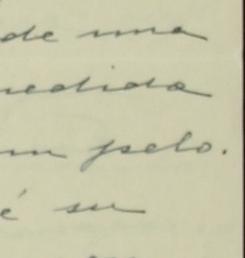 de una
medida
un pelo.
é su